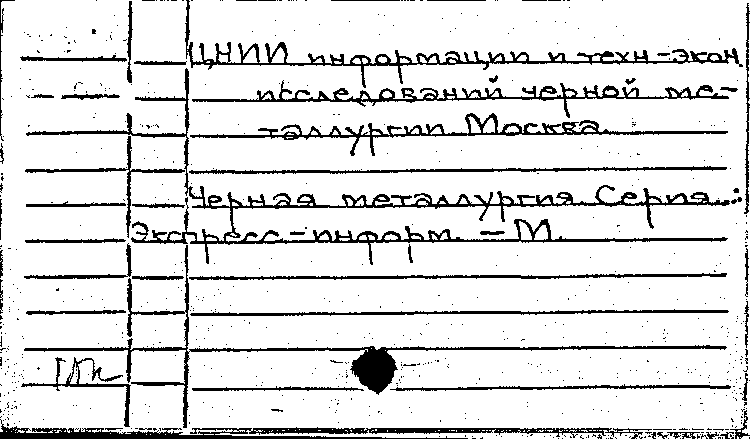 ЦНИИ информации и техн-экон.
исследований черной ме-
таллургии. Москва.
Черная металлургия. Серия...:
Экспресс-информ. – М.